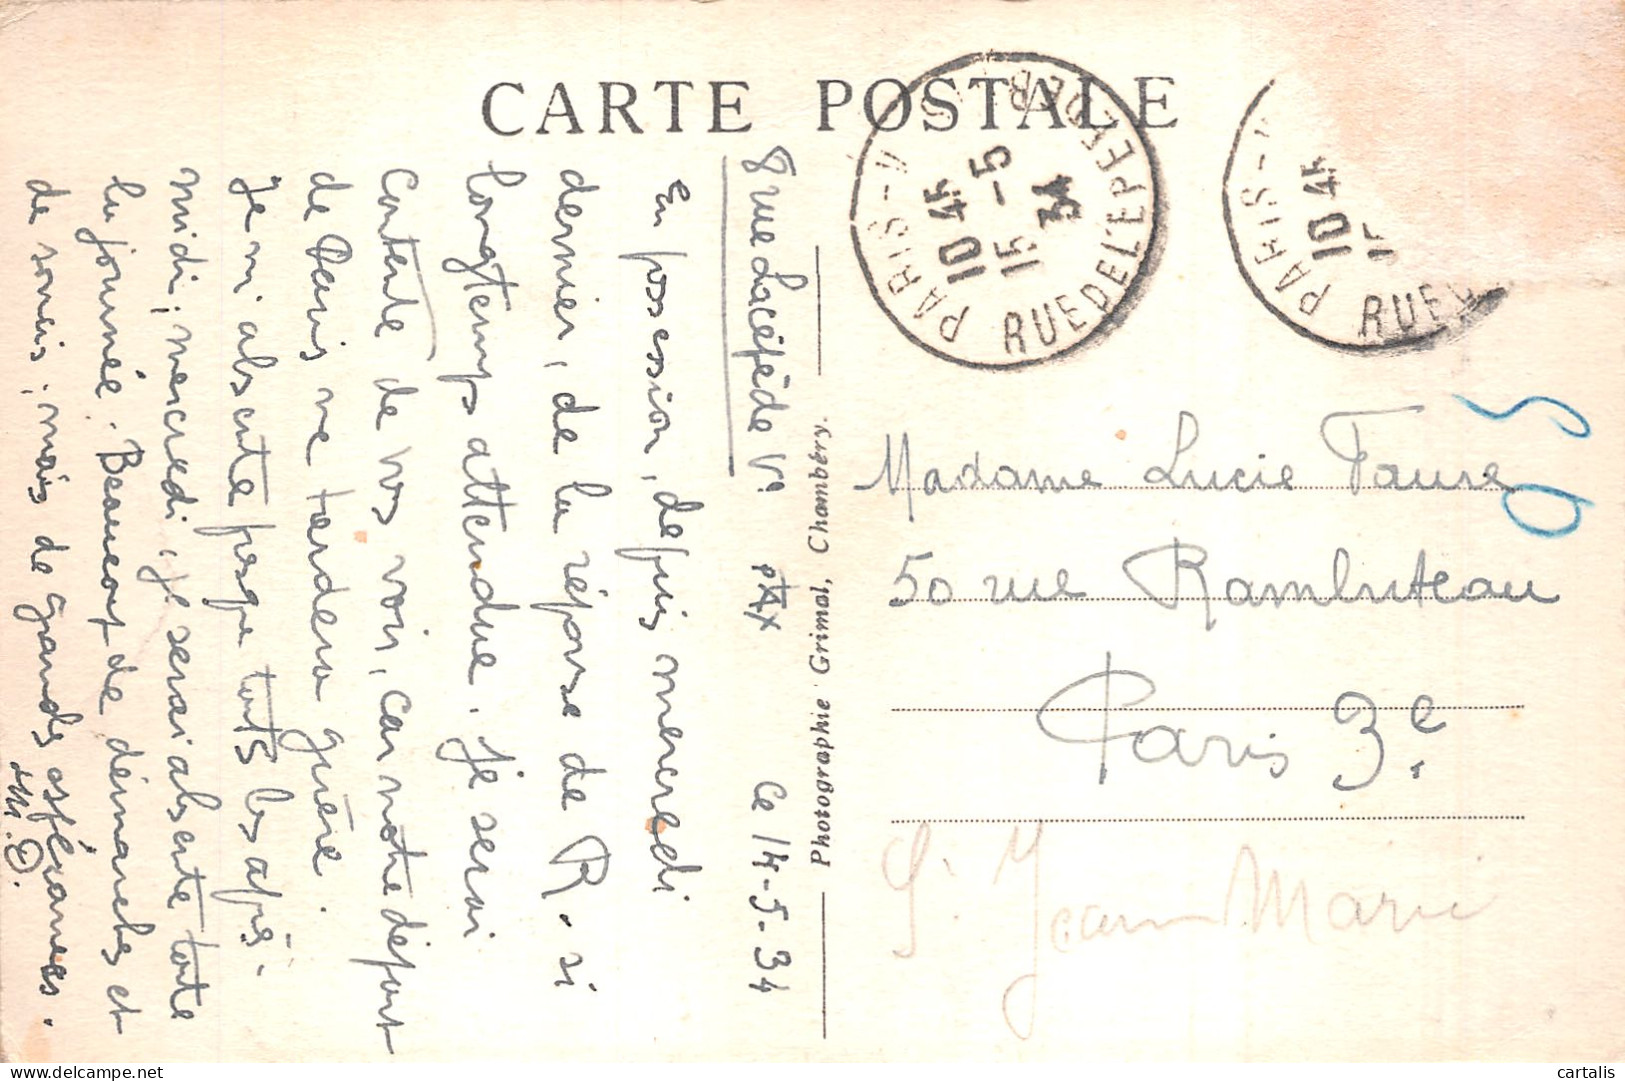 CARTE POSTALE
8 rue Lacépède Vº Ce 14-5-34
En possession, depuis mercredi
dernier, de la réponse de R. si
longtemps attendue. je serai
contente de vos voir, car notre départ
de Paris ne tardera guère.
je m'absente presque touts les après-
midi; mercredi, je serai absente toute
la journée. Beaucoup de démarches et
de soucis; mais de grandes espérances.
M.D.
Photographie Grimal, Chambéry.
PARIS-V
10 45
15 -5
34
RUE DE L'EPEE DE B
PARIS-V
10 45
15
RUE
Madame Lucie Faure
50 rue Rambuteau
Paris 3e.
59
St Jean Marie
cartalis